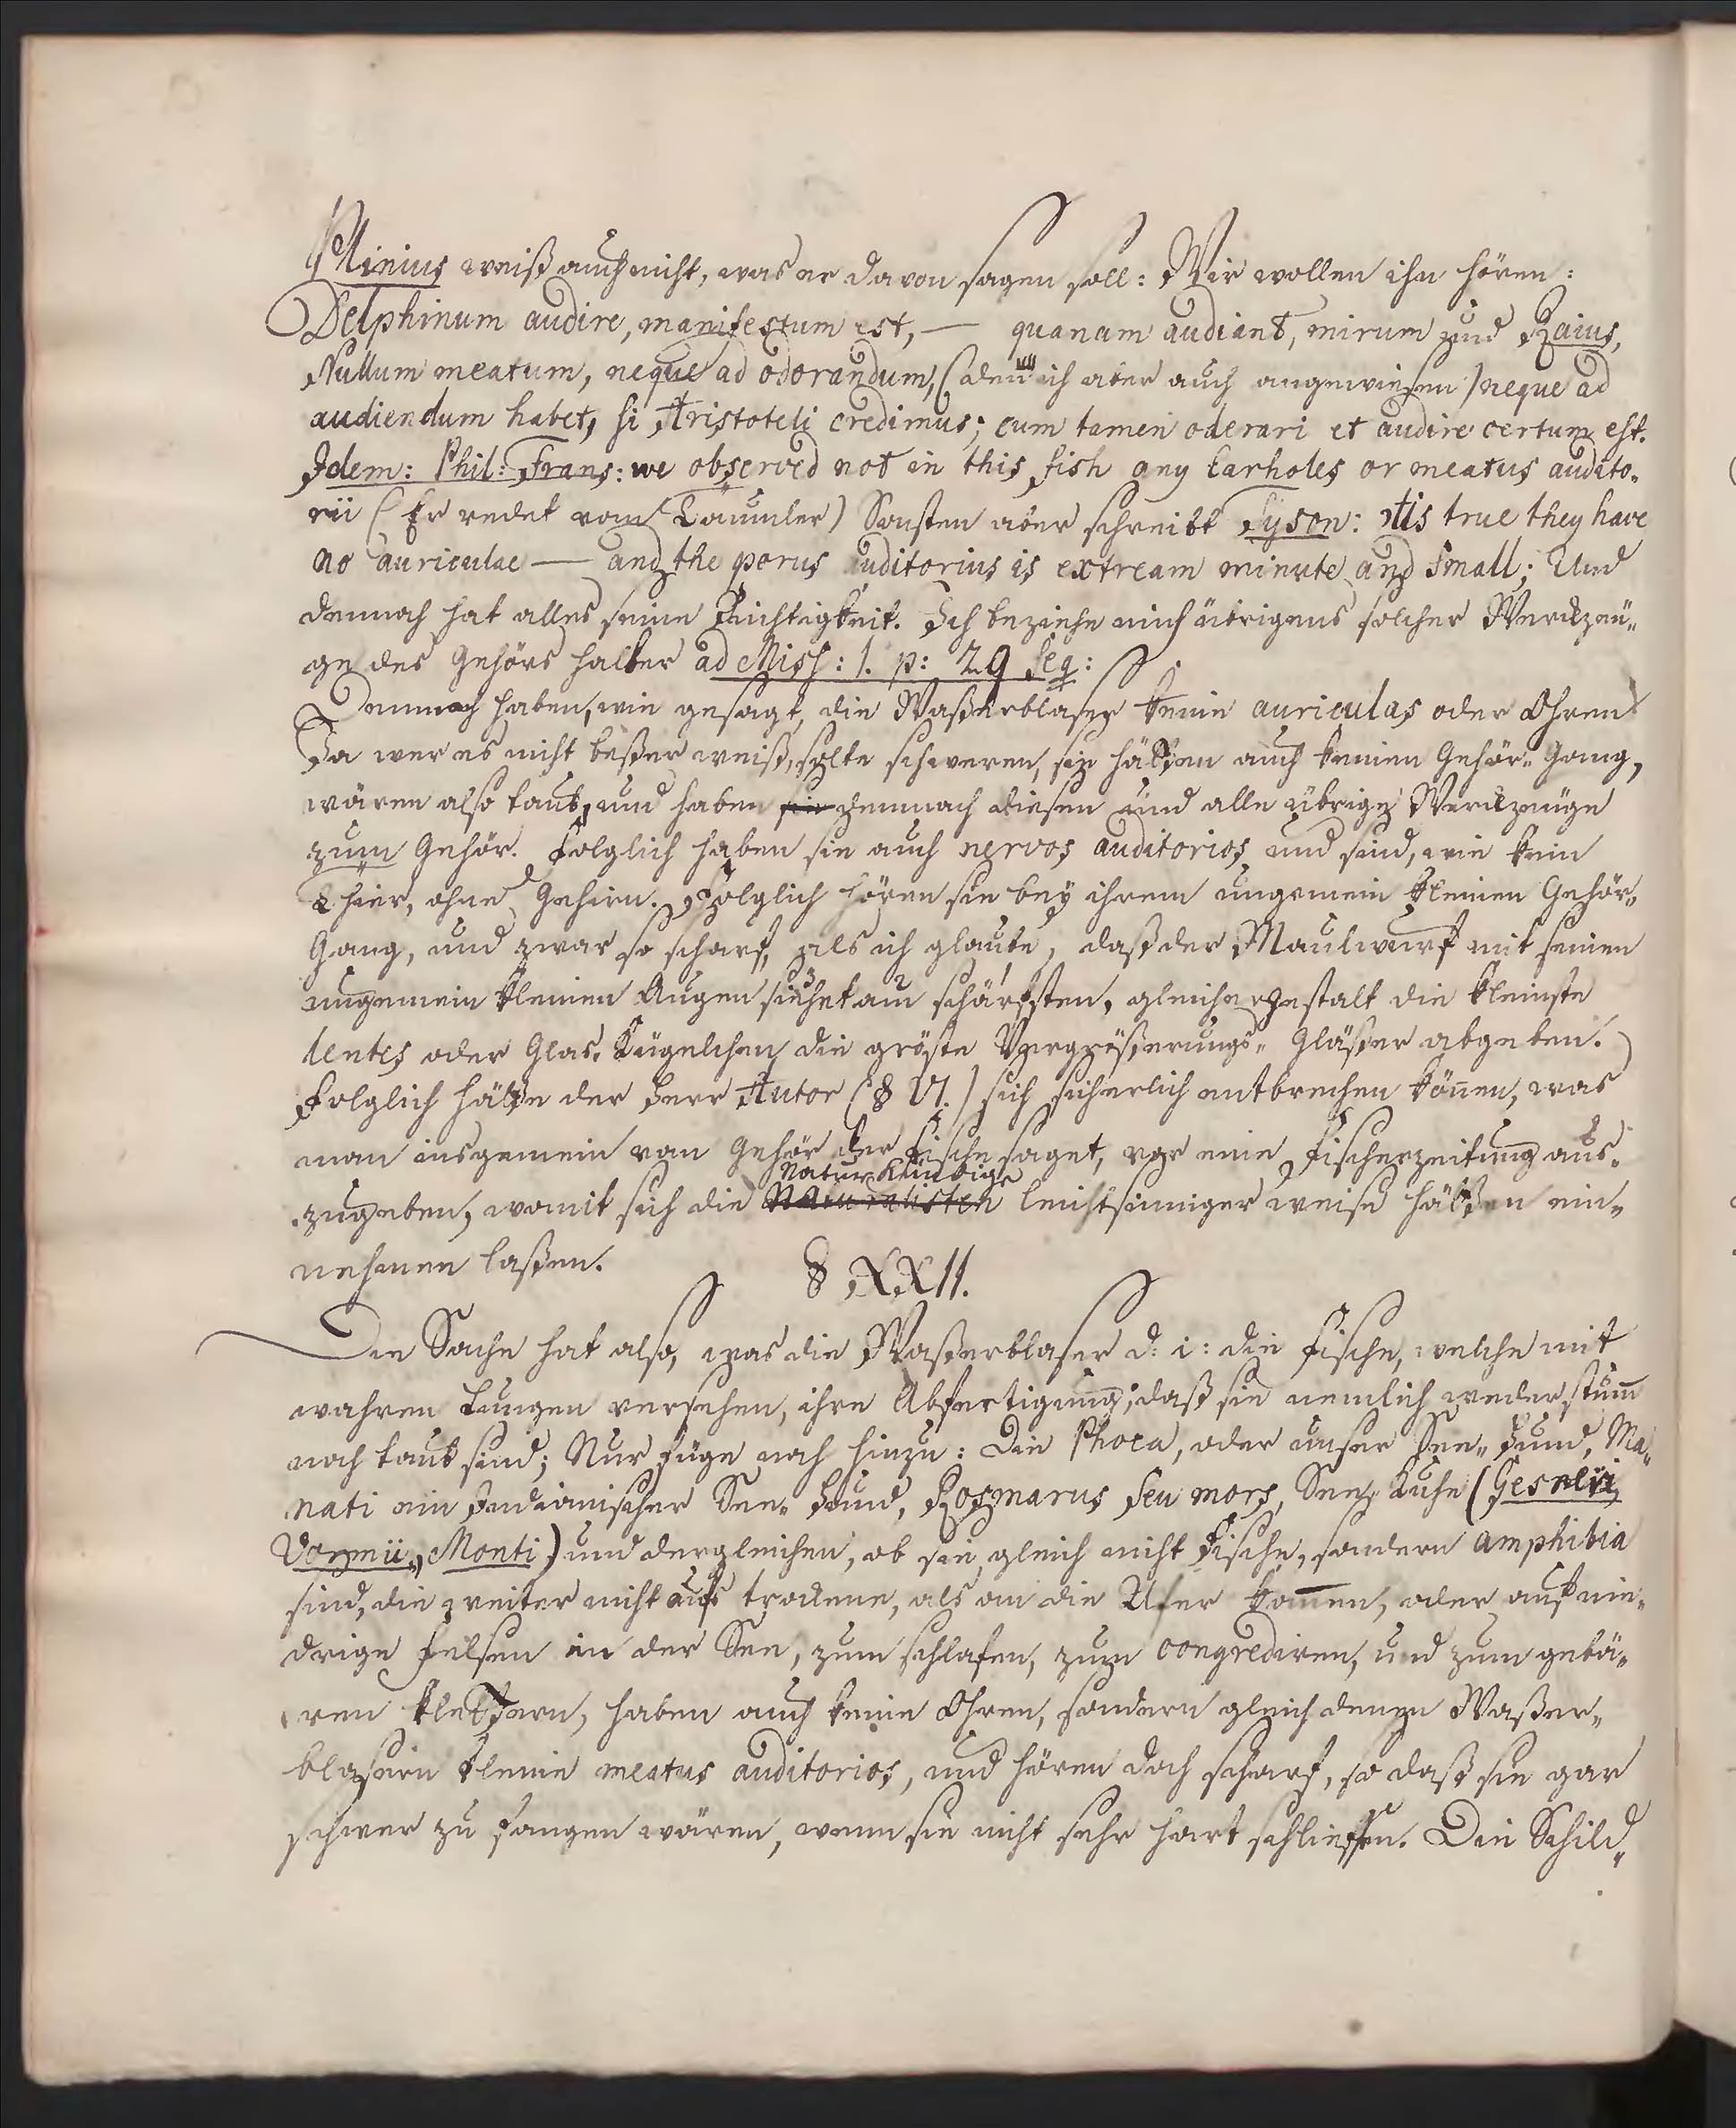 Plinius weiß auch nicht, was er davon sagen soll: Wir wollen ihn hören:
Delphinum audire, manifestum est, — quanam audiant, mirum und Rajus,
Nullum meatum, neque ad odorandum, (den ich aber auch angewiesen) neque ad
audiendum habet, si Aristoteli credimus; cum tamen oderari et audire certum est.
Idem: Phil: Trans: we observed not in this fish any Earholes or meatus audito„
rii (Er redet vom Täumler) Sonsten aber schreibt Tyson: Tis true they have
no auriculae — and the porus auditorius is extream minute and small; Und
dennoch hat alles seine Richtigkeit. Ich beziehe mich übrigens solcher Werckzeü„
ge des Gehörs halber ad Miss: 1. p: 29 seq:
Dennoch haben, wie gesagt, die Waßerblaser keine auriculas oder Ohren
Ja wer es nicht beßer weiß, solte schweren, sie hätten auch keinen Gehör„Gang,
wären also taub, und haben sie demnach diesen und alle übrige Werckzeüge
zum Gehör. Folglich haben sie auch nervos auditorios und sind, wie kein
Thier, ohne Gehirn. Folglich hören sie bey ihrem ungemein kleinen Gehör„
Gang, und zwar so scharf, als ich glaube, daß der Maulwurf mit seinen
ungemein kleinen Augen siehet am schärfsten, gleichergestalt die kleinste
lentes oder Glas„Kügelchen die gröste Vergrößerungs„Gläßer abgeben.
Folglich hätte der Herr Autor (§ VI.) sich sicherlich entbrechen können, was
man insgemein von Gehör der Fische saget, vor eine Fischerzeitung aus„
Natur Kündige
zugeben, womit sich die Naturalisten leichtsinniger weise hätten ein„
nehmen laßen.
§ XXII.
Die Sache hat also, was die Waßerblaser d. i: die Fische, welche mit
wahren Lungen versehen, ihre Abfertigung; daß sie nemlich weder stum̅
noch taub sind; Nur füge noch hinzu: Die Phoca, oder unser See„Hund, Ma„
nati ein Indianischer See„Hund, Rosmarus seu mors, See„Kuhe (Gesneri,
Vormii, Monti) und dergleichen, ob sie gleich nicht Fische, sondern amphibia
sind, die weiter nicht aufs trockene, als an die Ufer kom̅en, oder auf nie„
drige Felsen in der See, zum schlafen, zum congrediren, und zum gebä„
ren klettern, haben auch keine Ohren, sondern gleich denen Waßer„
blasern kleine meatus auditorios, und hören doch scharf, so daß sie gar
schwer zu fangen wären, wenn sie nicht sehr hart schlieffen. Die Schild„